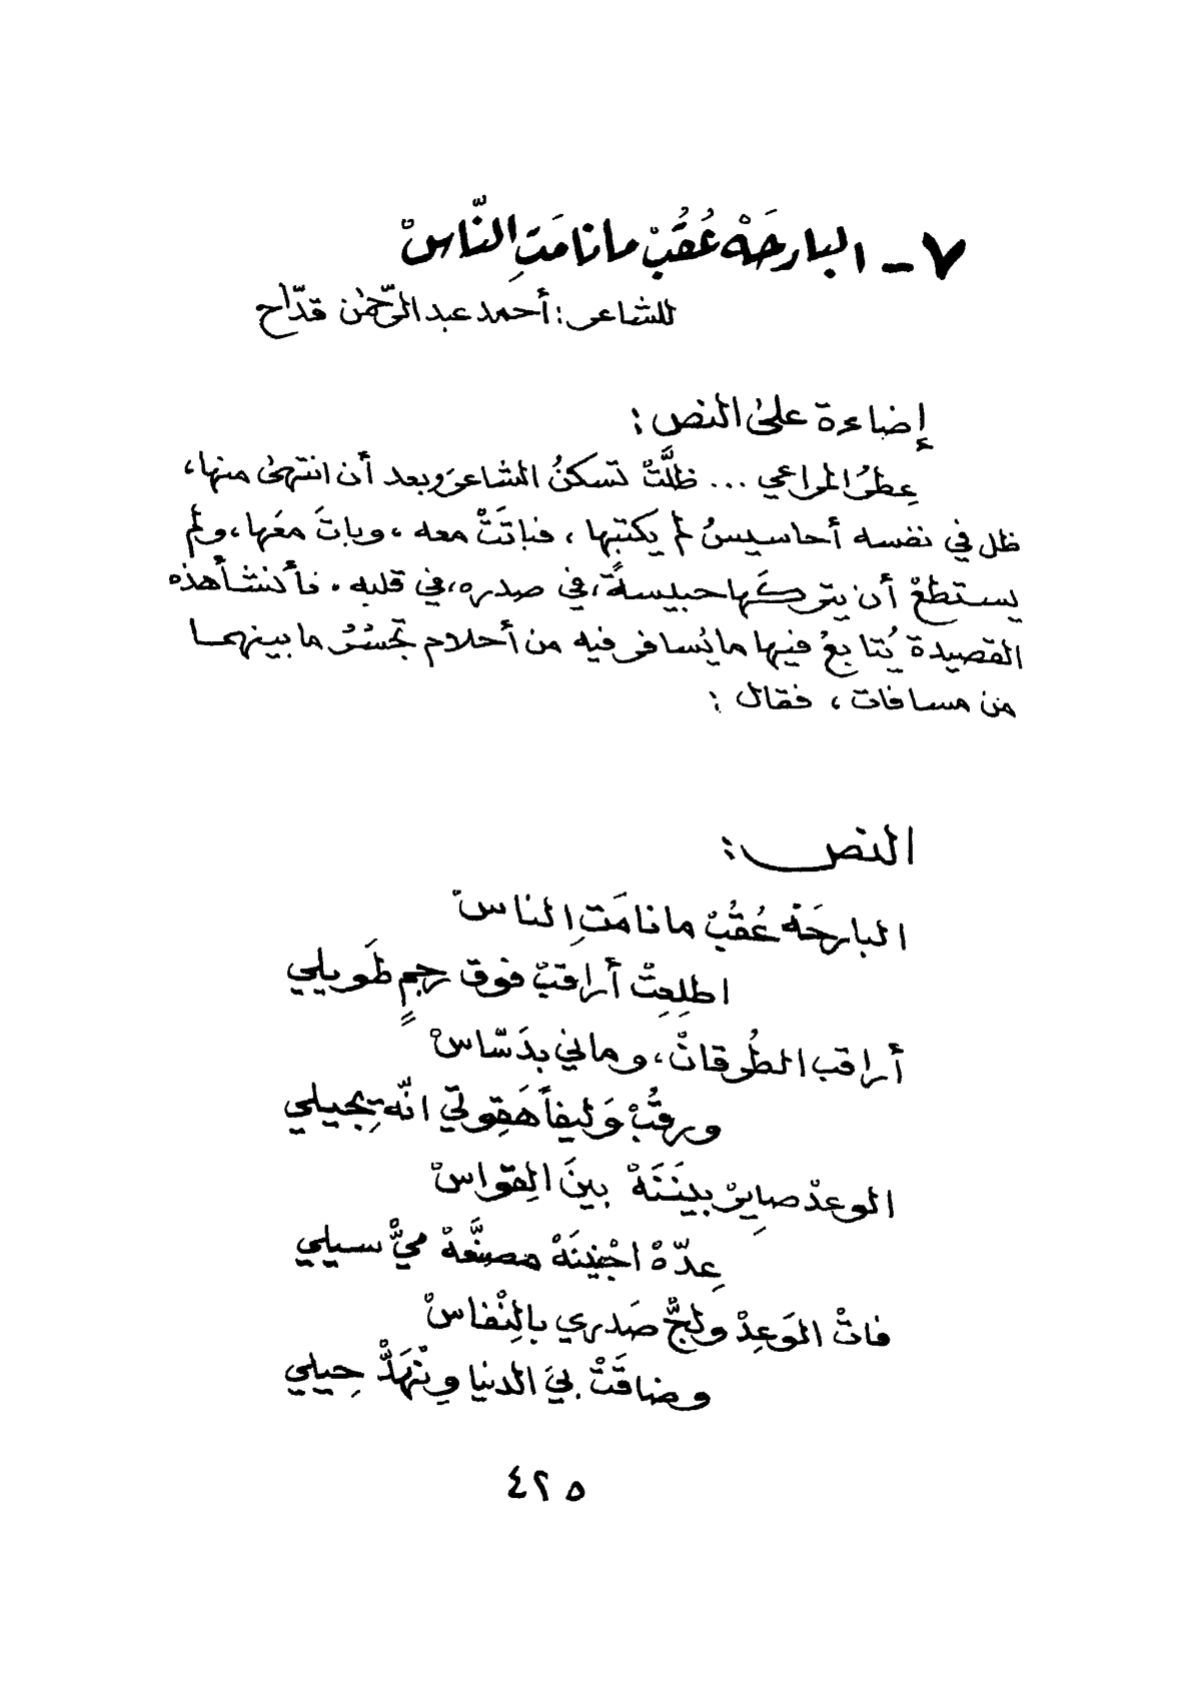 ٧ - البارحَهْ عُقُبْ ما نامَتِ النّاسْ
للشاعر : أحمد عبد الرّحمٰن قدّاح
إضاءة علىٰ النص :
عِطرُ المراعي ... ظلَّتْ تسكنُ الشاعرَ وبعد أن انتهىٰ منها ،
ظل في نفسه أحاسيسُ لم يكتبها ، فباتَتْ معه ، وباتَ معَها ، ولم
يستطعْ أن يتركَها حبيسةً ، في صدره ، في قلبه . فأنشأ هذه
القصيدة يُتابعُ فيها ما يُسافر فيه من أحلام تجسُرُ ما بينهما
من مسافات ، فقال :
النص :
البارحَهْ عُقُبْ ما نامَتِ الناسْ
اطلِعِتْ أراقبْ فوق رجمٍ طَويلي
أراقب الطُرقاتْ ، وماني بدَسّاسْ
ورقُبْ وَليفاً هَقِوتي انّه يِجيلي
الوعدْ صايِرْ بينَنَهْ بينَ الِقواسْ
عِدّهْ اجْنينَهْ مصنَّعهْ ميْ سيلي
فاتْ الوَعِدْ ولجّْ صَدري بالِنْفاسْ
وضاقَتْ بيَ الدنيا وِنْهَدّْ حِيلي
٤٢٥